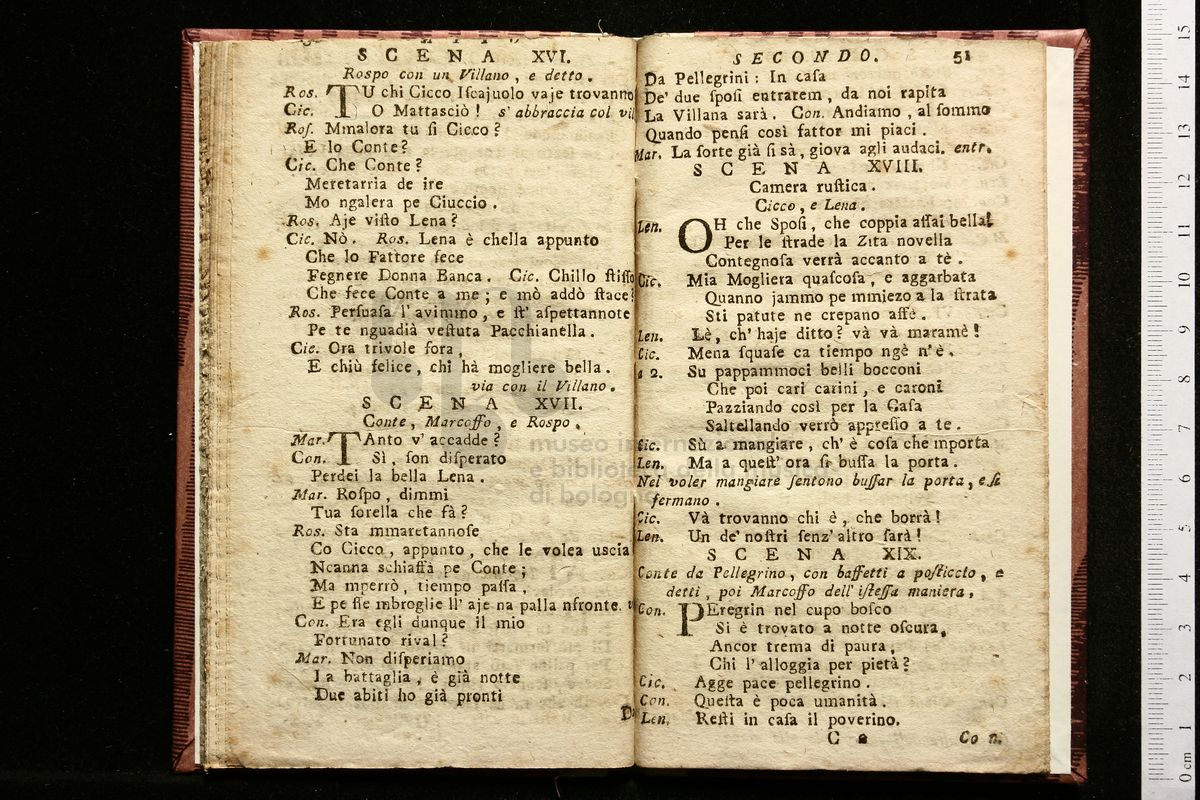 SCENA XVI.
Rospo con un Villano, e detto.
Ros. TU chi Cicco Iſcajuolo vaje trovanno
Cic. O Mattasciò! s' abbraccia col vil
Roſ. Mmalora tu ſi Cicco?
E lo Conte?
Cic. Che Conte?
Meretarria de ire
Mo ngalera pe Ciuccio.
Ros. Aje viſto Lena?
Cic. Nò. Ros. Lena è chella appunto
Che lo Fattore fece
Fegnere Donna Banca. Cic. Chillo ſtiſſo
Che fece Conte a me; e mò addò ſtace?
Ros. Perſuaſa l' avimmo, e ſt' aſpettannote
Pe te nguadià veſtuta Pacchianella.
Cic. Ora trivole fora,
E chiù felice, chi hà mogliere bella.
via con il Villano.
SCENA XVII.
Conte, Marcoffo, e Rospo.
Mar. TAnto v' accadde?
Con. Sì, ſon diſperato
Perdei la bella Lena.
Mar. Roſpo, dimmi
Tua ſorella che fà?
Ros. Sta mmaretannoſe
Co Cicco, appunto, che le volea uscia
Ncanna schiaffà pe Conte;
Ma mperrò, tiempo paſſa,
E pe ſte mbroglie ll' aje na palla nfronte.
Con. Era egli dunque il mio
Fortunato rival?
Mar. Non diſperiamo
La battaglia, è già notte
Due abiti ho già pronti
SECONDO. 51
Da Pellegrini: In caſa
De' due ſpoſi entrarem, da noi rapita
La Villana sarà. Con. Andiamo, al ſommo
Quando penſi così fattor mi piaci.
Mar. La ſorte già ſi sà, giova agli audaci. entr.
SCENA XVIII.
Camera ruſtica.
Cicco, e Lena.
Len. OH che Spoſi, che coppia aſſai bella!
Per le ſtrade la Zita novella
Contegnoſa verrà accanto a tè.
Cic. Mia Mogliera quaſcoſa, e aggarbata
Quanno jammo pe mmiezo a la ſtrata
Sti patute ne crepano affè.
Len. Lè, ch' haje ditto? và và maramè!
Cic. Mena ſquaſe ca tiempo ngè n' è.
a 2. Su pappammoci belli bocconi
Che poi cari carini, e caroni
Pazziando così per la Caſa
Saltellando verrò appreſſo a te.
Cic. Sù a mangiare, ch' è coſa che mporta
Len. Ma a queſt' ora ſi buſſa la porta.
Nel voler mangiare ſentono buſſar la porta, e ſe
fermano.
Cic. Và trovanno chi è, che borrà!
Len. Un de' noſtri ſenz' altro ſarà!
SCENA XIX.
Conte da Pellegrino, con baffetti a poſticcio, e
detti, poi Marcoffo dell' iſteſſa maniera,
Con. PEregrin nel cupo boſco
Si è trovato a notte oſcura,
Ancor trema di paura,
Chi l' alloggia per pietà?
Cic. Agge pace pellegrino.
Con. Queſta è poca umanità.
Len. Reſti in caſa il poverino.
C 2 Con.